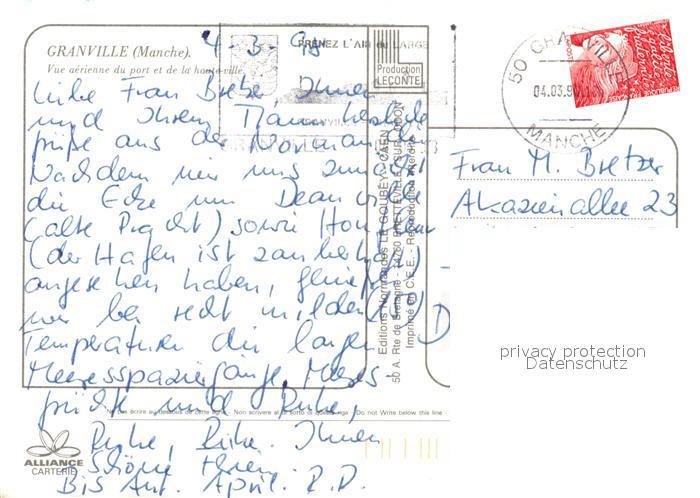 4-3-98
PRENEZ L'AIR du LARGE
GRANVILLE (Manche).
Vue aérienne du port et de la haute ville
Production
LECONTE
50 GRANVILLE
04.03.98
MANCHE
Liebe Frau Bretzer, Ihnen
und Ihrem Mann herzliche
Grüße aus der Normandie.
Nachdem wir uns zunächst
die Ecke um Deauville
(alte Pracht) sowie Honfleur
(der Hafen ist zauberhaft)
angesehen haben, genießen
wir bei recht milden
Temperaturen die langen
Meeresspaziergänge, Meeres-
früchte und Ruhe,
Ruhe, Ruhe. Ihnen
schöne Ferien.
Bis Anf. April. R.D.
Frau M. Bretzer
Akazienallee 23
D
Editions Normandes LE GOUBEY - CAEN
50 A. Rte de Bretagne - 14760 BRETTEVILLE-SUR-ODON
Imprimé en C.E.E. - Reproduction interdite
Ne pas écrire au-dessous de cette ligne. Non scrivere al di sotto di questa riga. Do not Write below this line -
privacy protection
Datenschutz
ALLIANCE
CARTERIE